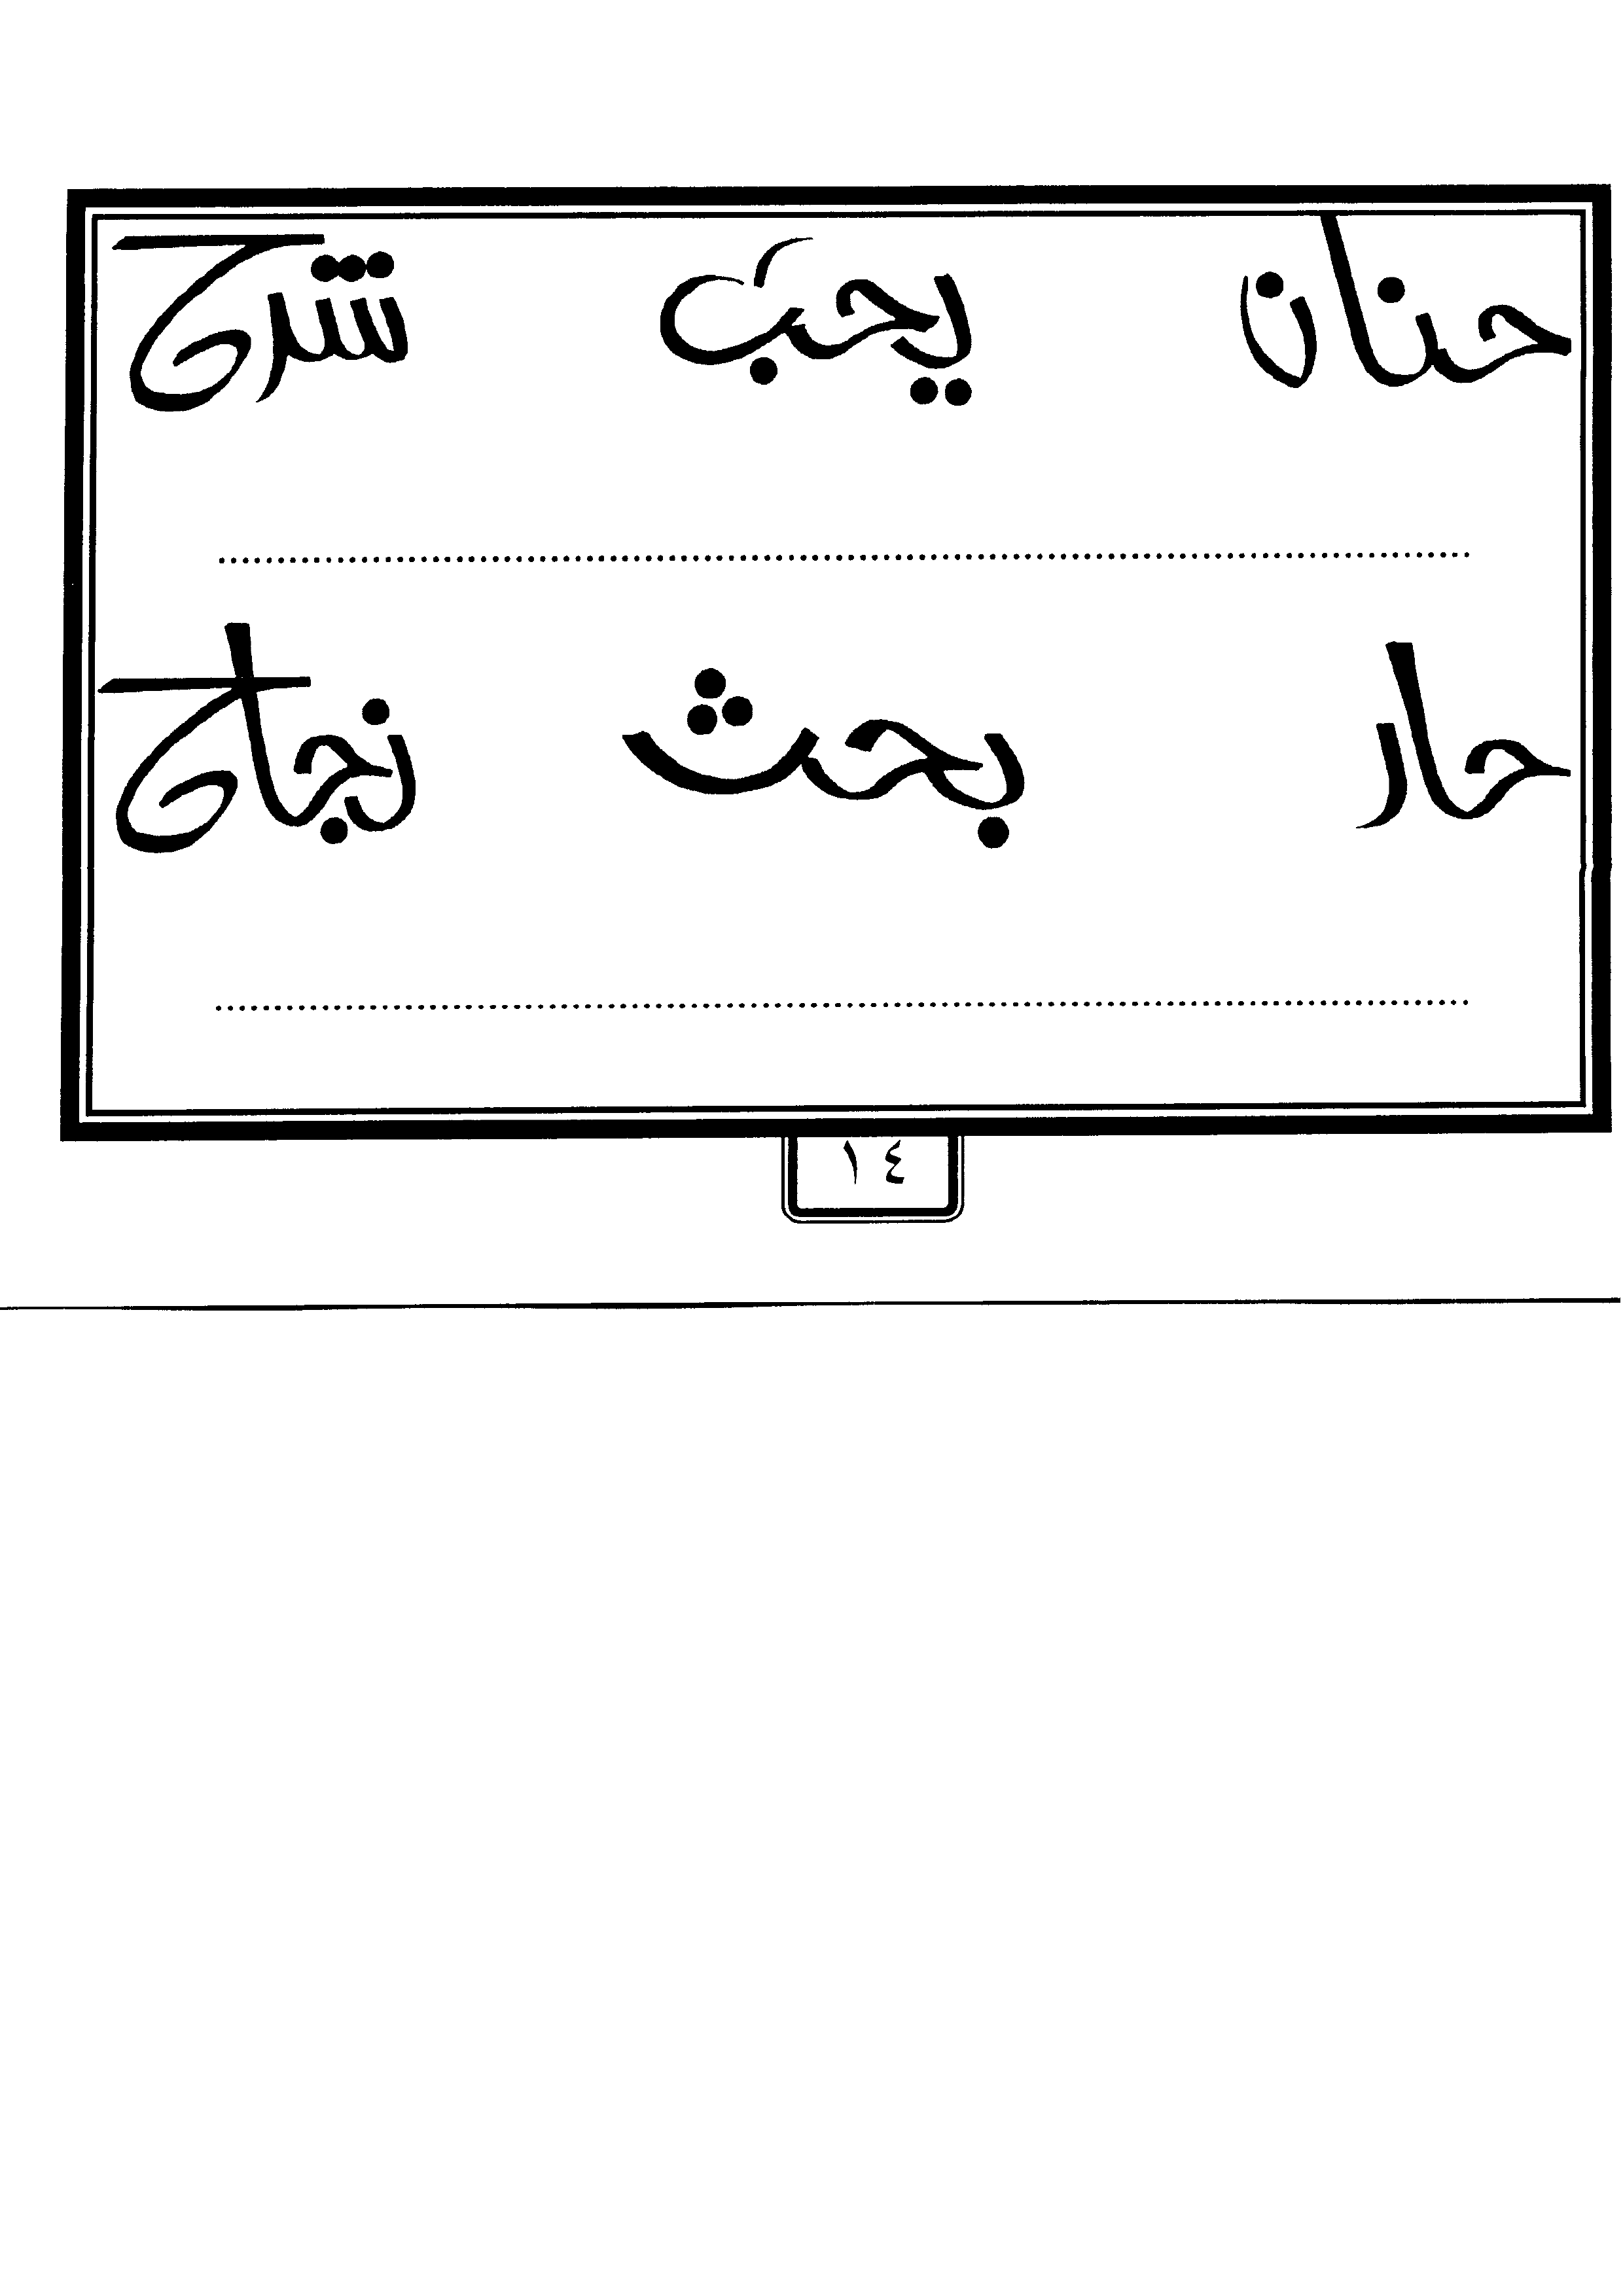 حنان يحب شرح
حار بحث نجاح
١٤